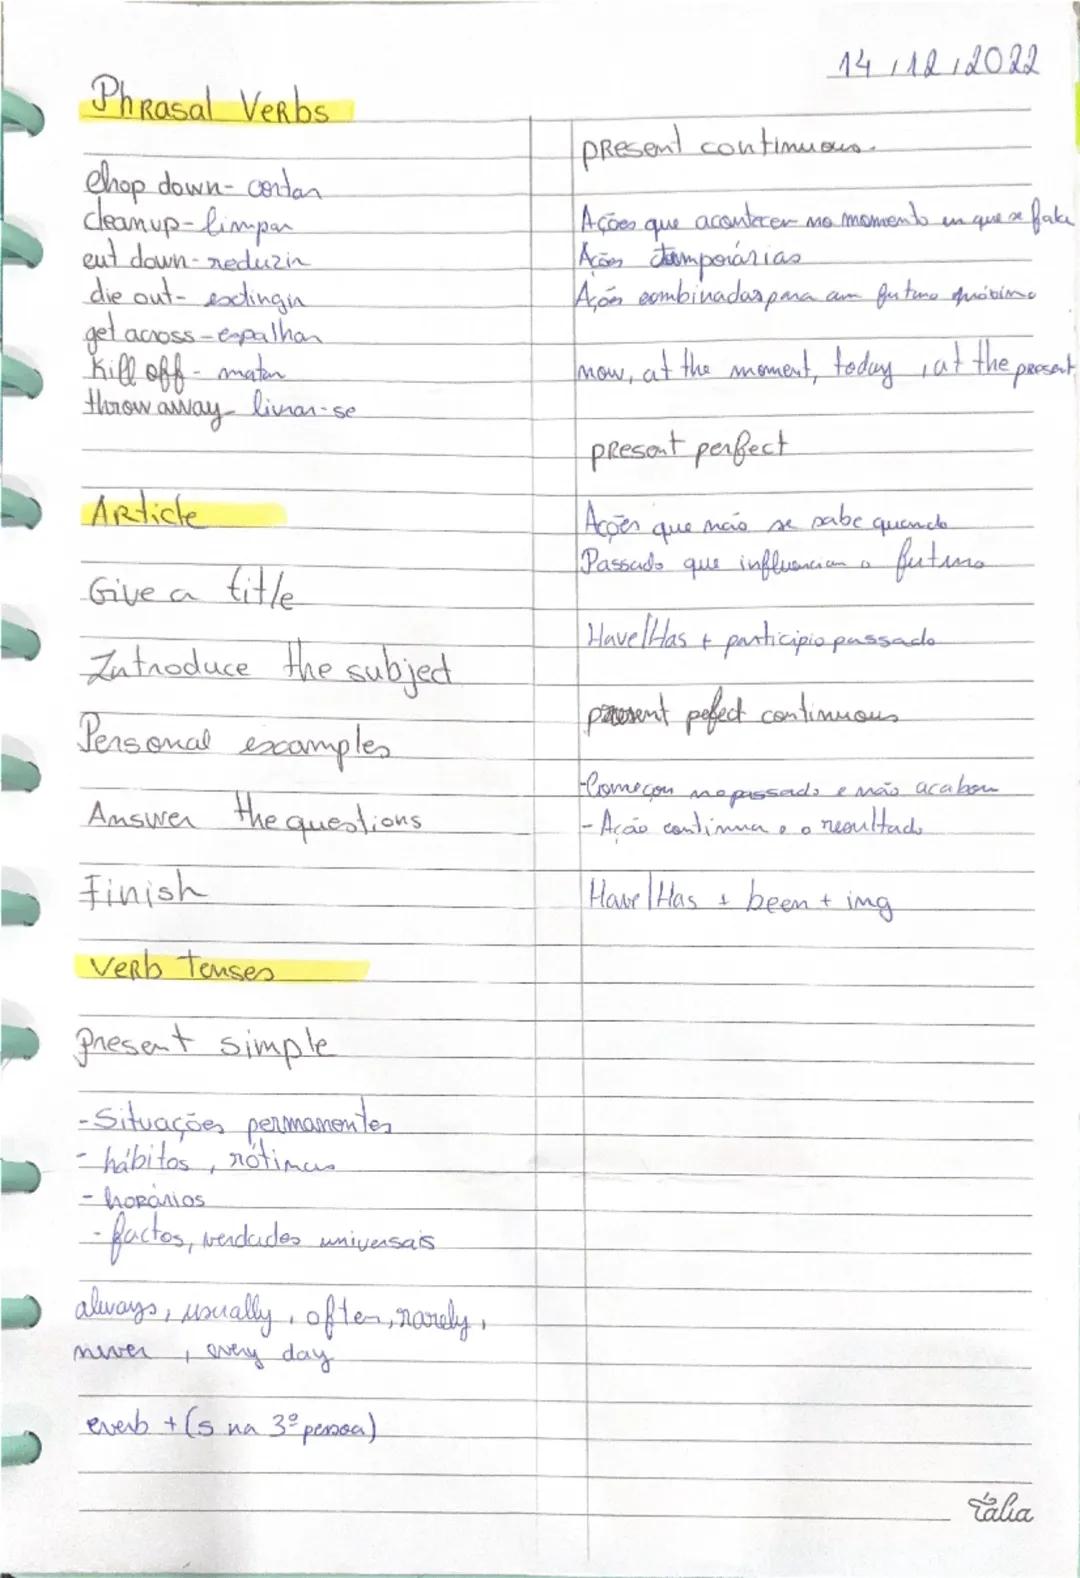 14/12/2022
Phrasal Verbs
chop down - cortar
clean up - limpar
cut down - reduzir
die out - extinguir
get across - espalhar
Kill off - matar
throw away - livrar-se
Article
Give a title
Introduce the subject
Personal examples
Answer the questions
Finish
Verb Tenses
Present simple
- Situações permanentes
- hábitos, rótinas
- horários
- factos, verdades universais
always, usually, often, rarely,
never, every day
verb + (s na 3ª pessoa)
present continuous
Ações que acontecer no momento em que se fala
Ações temporárias
Ações combinadas para um futuro próximo
now, at the moment, today, at the present
present perfect
Ações que não se sabe quando
Passado que influenciam o futuro
Have/Has + participio passado
present pefect continuous
- Começou no passado e não acabou
- Ação continua e o resultado
Have/Has + been + ing
Tália